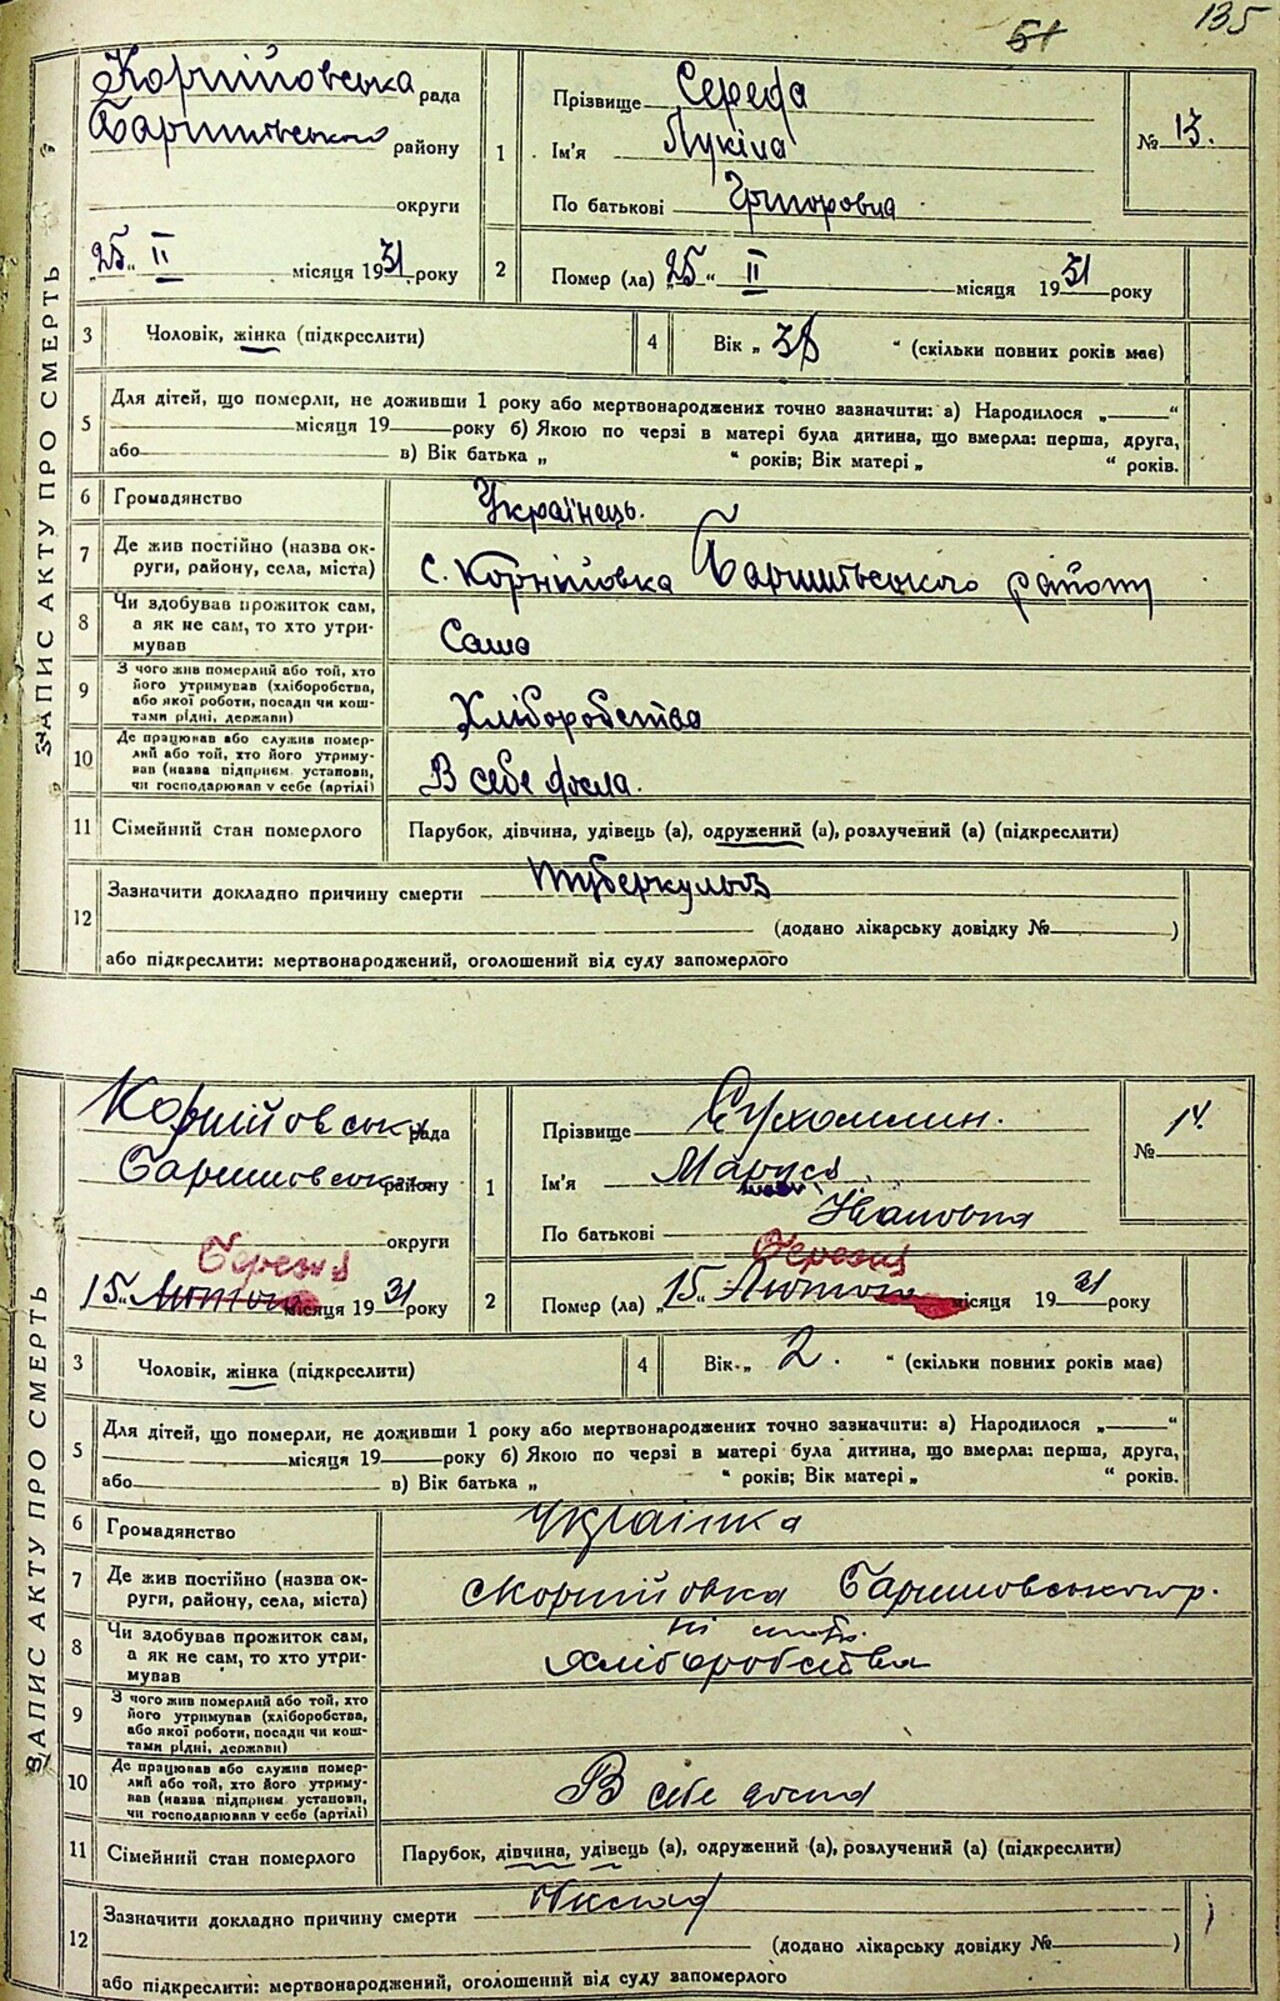 51 135
ЗАПИС АКТУ ПРО СМЕРТЬ
Корнійовська рада
Баришівського району
округи
„25“ II місяця 1931 року
1
Прізвище Середа
Ім'я Лукіна
По батькові Григоровна
№ 13.
2
Помер (ла) „25“ II місяця 1931 року
3 Чоловік, жінка (підкреслити)
4 Вік „38“ (скільки повних років має)
5 Для дітей, що померли, не доживши 1 року або мертвонароджених точно зазначити: а) Народилося „ “
місяця 19 року б) Якою по черзі в матері була дитина, що вмерла: перша, друга,
або в) Вік батька „ “ років; Вік матері „ “ років.
6 Громадянство Українець.
7 Де жив постійно (назва ок-
руги, району, села, міста) с. Корнійовка Баришівського району
8 Чи здобував прожиток сам,
а як не сам, то хто утри-
мував Сама
9 З чого жив померлий або той, хто
його утримував (хліборобства,
або якої роботи, посади чи кош-
тами рідні, держави) Хліборобства
10 Де працював або служив помер-
лий або той, хто його утриму-
вав (назва підприєм. установи,
чи господарював у себе (артілі) В себе дома.
11 Сімейний стан померлого Парубок, дівчина, удівець (а), одружений (а), розлучений (а) (підкреслити)
12 Зазначити докладно причину смерти Туберкульоз
(додано лікарську довідку № )
або підкреслити: мертвонароджений, оголошений від суду запомерлого
ЗАПИС АКТУ ПРО СМЕРТЬ
Корнійовськ рада
Баришовського району
округи
Березня
15 „ Лютого місяця 1931 року
1
Прізвище Сухомлин.
Ім'я Маруся
По батькові Івановна
№ 14.
Березня
2 Помер (ла) „15“ Лютого місяця 1931 року
3 Чоловік, жінка (підкреслити)
4 Вік „ 2. “ (скільки повних років має)
5 Для дітей, що померли, не доживши 1 року або мертвонароджених точно зазначити: а) Народилося „ “
місяця 19 року б) Якою по черзі в матері була дитина, що вмерла: перша, друга,
або в) Вік батька „ “ років; Вік матері „ “ років.
6 Громадянство Українка
7 Де жив постійно (назва ок-
руги, району, села, міста) с Корнійовка Баришовського р.
8 Чи здобував прожиток сам,
а як не сам, то хто утри-
мував ні
хліборобства
9 З чого жив померлий або той, хто
його утримував (хліборобства,
або якої роботи, посади чи кош-
тами рідні, держави)
10 Де працював або служив помер-
лий або той, хто його утриму-
вав (назва підприєм. установи,
чи господарював у себе (артілі) В себе дома
11 Сімейний стан померлого Парубок, дівчина, удівець (а), одружений (а), розлучений (а) (підкреслити)
12 Зазначити докладно причину смерти
(додано лікарську довідку № )
або підкреслити: мертвонароджений, оголошений від суду запомерлого